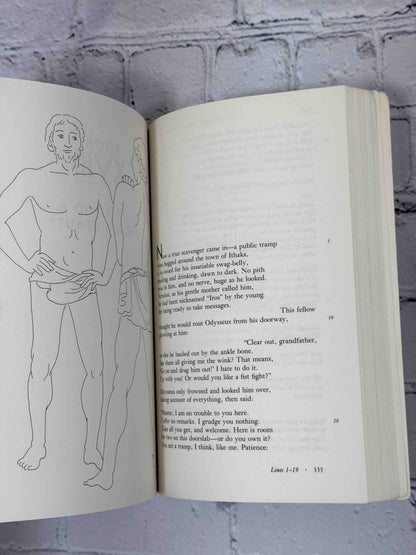 Now a true scavenger came in—a public tramp 1
who begged around the town of Ithaka,
by-word for his insatiable swag-belly,
feeding and drinking, dawn to dark. No pith
was in him, and no nerve, huge as he looked.
as his gentle mother called him,
had been nicknamed “Iros” by the young
for being ready to take messages.
This fellow
thought he would rout Odysseus from his doorway, 10
growling at him:
“Clear out, grandfather,
or else be hauled out by the ankle bone.
See them all giving me the wink? That means,
‘Go on and drag him out!’ I hate to do it.
Up with you! Or would you like a fist fight?”
Odysseus only frowned and looked him over,
taking account of everything, then said:
I am no trouble to you here.
offer no remarks. I grudge you nothing.
Take all you get, and welcome. Here is room 20
for two on this doorslab—or do you own it?
You are a tramp, I think, like me. Patience:
Lines 1–19 · 335